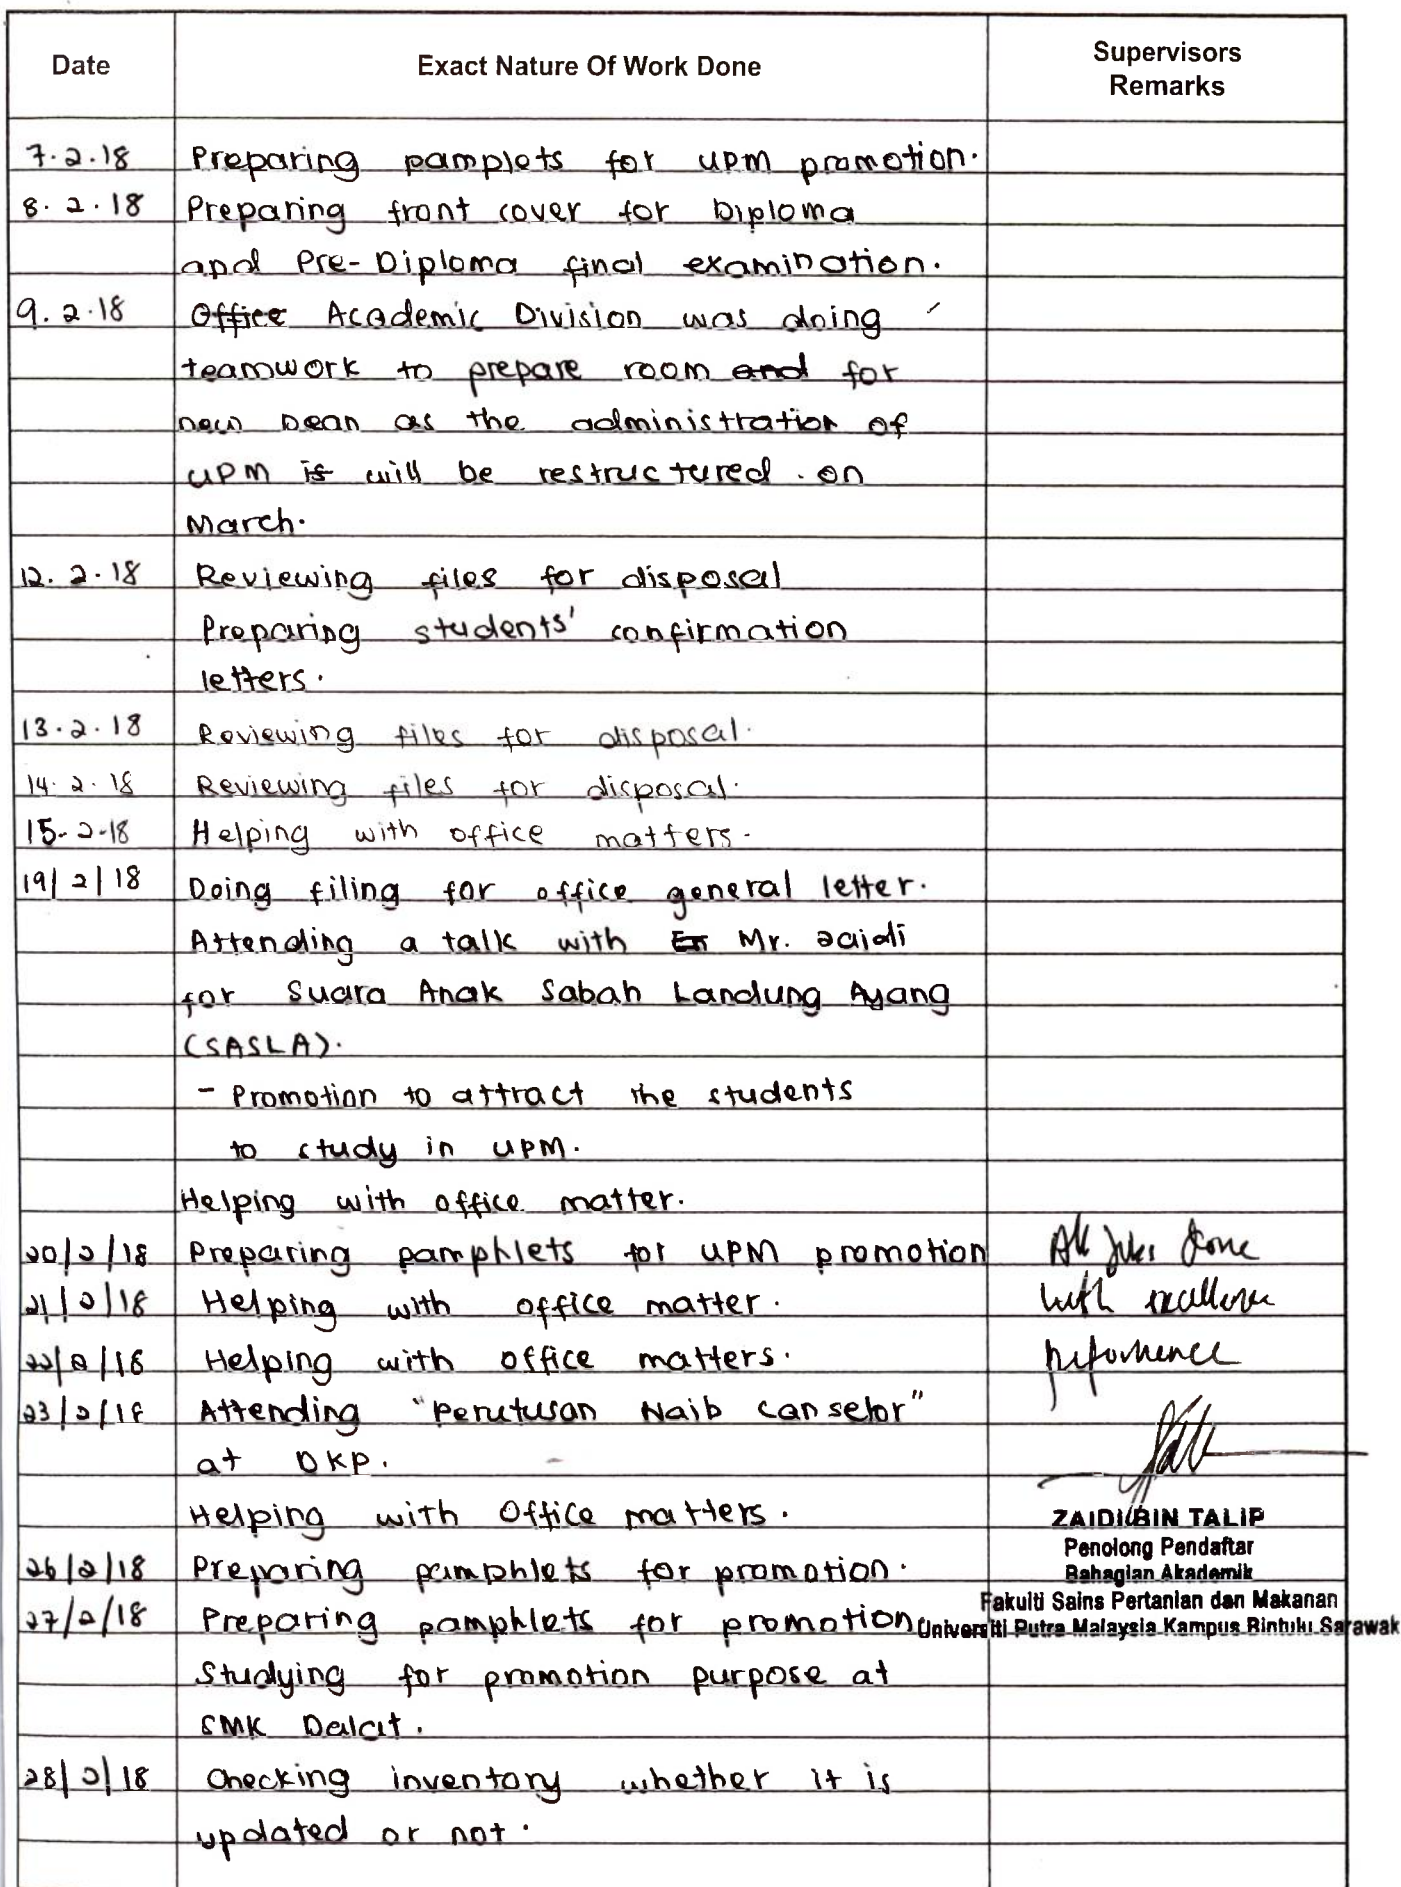 Date Exact Nature Of Work Done Supervisors
Remarks
7.2.18 Preparing pamplets for UPM promotion.
8.2.18 Preparing front cover for Diploma
and Pre-Diploma final examination.
9.2.18 Office Academic Division was doing
teamwork to prepare room and for
new Dean as the administration of
UPM is will be restructured. on
March.
12.2.18 Reviewing files for disposal
Preparing students' confirmation
letters.
13.2.18 Reviewing files for disposal.
14.2.18 Reviewing files for disposal.
15-2-18 Helping with office matters.
19/2/18 Doing filing for office general letter.
Attending a talk with En Mr. Zaidi
for Suara Anak Sabah Landung Ayang
(SASLA).
- Promotion to attract the students
to study in UPM.
Helping with office matter.
20/2/18 Preparing pamphlets for UPM promotion All done
21/2/18 Helping with office matter. with
22/2/18 Helping with office matters.
23/2/18 Attending "Perutusan Naib Canselor"
at DKP.
Helping with Office matters. ZAIDI BIN TALIP
Penolong Pendaftar
26/2/18 Preparing pamphlets for promotion. Bahagian Akademik
Fakulti Sains Pertanian dan Makanan
27/2/18 Preparing pamphlets for promotion Universiti Putra Malaysia Kampus Bintulu Sarawak
Studying for promotion purpose at
SMK Dalat.
28/2/18 Checking inventory whether it is
updated or not.